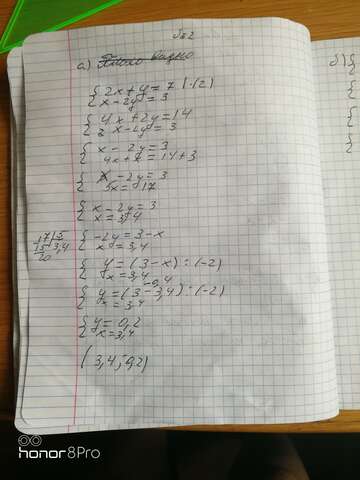 №2
а) Плохо видно
{2x + y = 7 | (·2)
x - 2y = 3
{4x + 2y = 14
x - 2y = 3
{x - 2y = 3
4x + x = 14 + 3
{x - 2y = 3
5x = 17
{x - 2y = 3
x = 3,4
17|5
15 3,4
20
{-2y = 3 - x
x = 3,4
{y = (3 - x) : (-2)
x = 3,4
-0,4
{y = (3 - 3,4) : (-2)
x = 3,4
{y = 0,2
x = 3,4
(3,4; 0,2)
б) {
{
{
honor 8 Pro